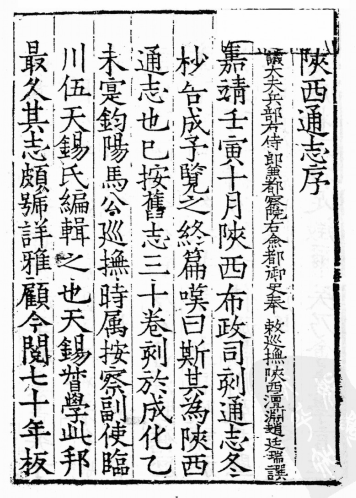 陝西通志序
議大夫兵部右侍郎兼都察院右僉都御史奉 敕巡撫陝西澶淵趙廷瑞譔
嘉靖壬寅十月陝西布政司刻通志冬
杪告成予覽之終篇嘆曰斯其為陝西
通志也已按舊志三十卷刻於成化乙
未寔鈞陽馬公巡撫時属按察副使臨
川伍天錫氏編輯之也天錫督學此邦
最久其志頗號詳雅顧今閱七十年板